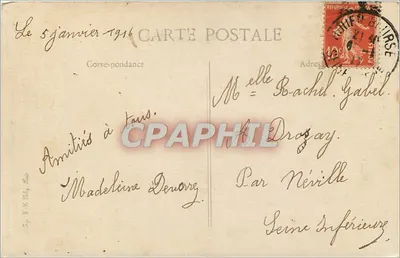 Le 5 janvier 1916
CARTE POSTALE
Correspondance
Adresse
Melle Rachel Gabel
à Drozay
Par Néville
Seine Inférieure
Amitiés à tous.
Madeleine
CPAPHIL.COM